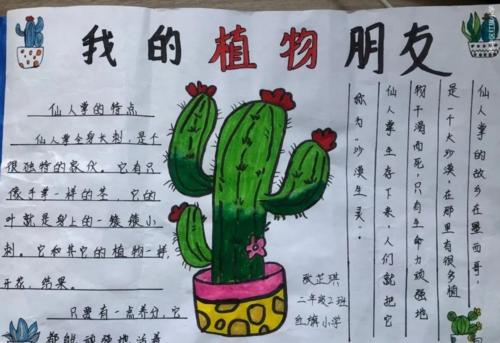 我的植物朋友
仙人掌的特点
仙人掌全身长刺,是个
很独特的家伙。它有只
像手掌一样的茎,它的
叶就是身上的一簇簇小
刺。它和其它的植物一样,
开花,结果。
只要有一点养分,它
都能顽强地活着
仙人掌的故乡在墨西哥,
是一个大沙漠,在那里有很多植
物干渴而死,只有生命力顽强地
仙人掌生存下来,人们就把它
称为“沙漠生灵”。
二年级2班
红旗小学